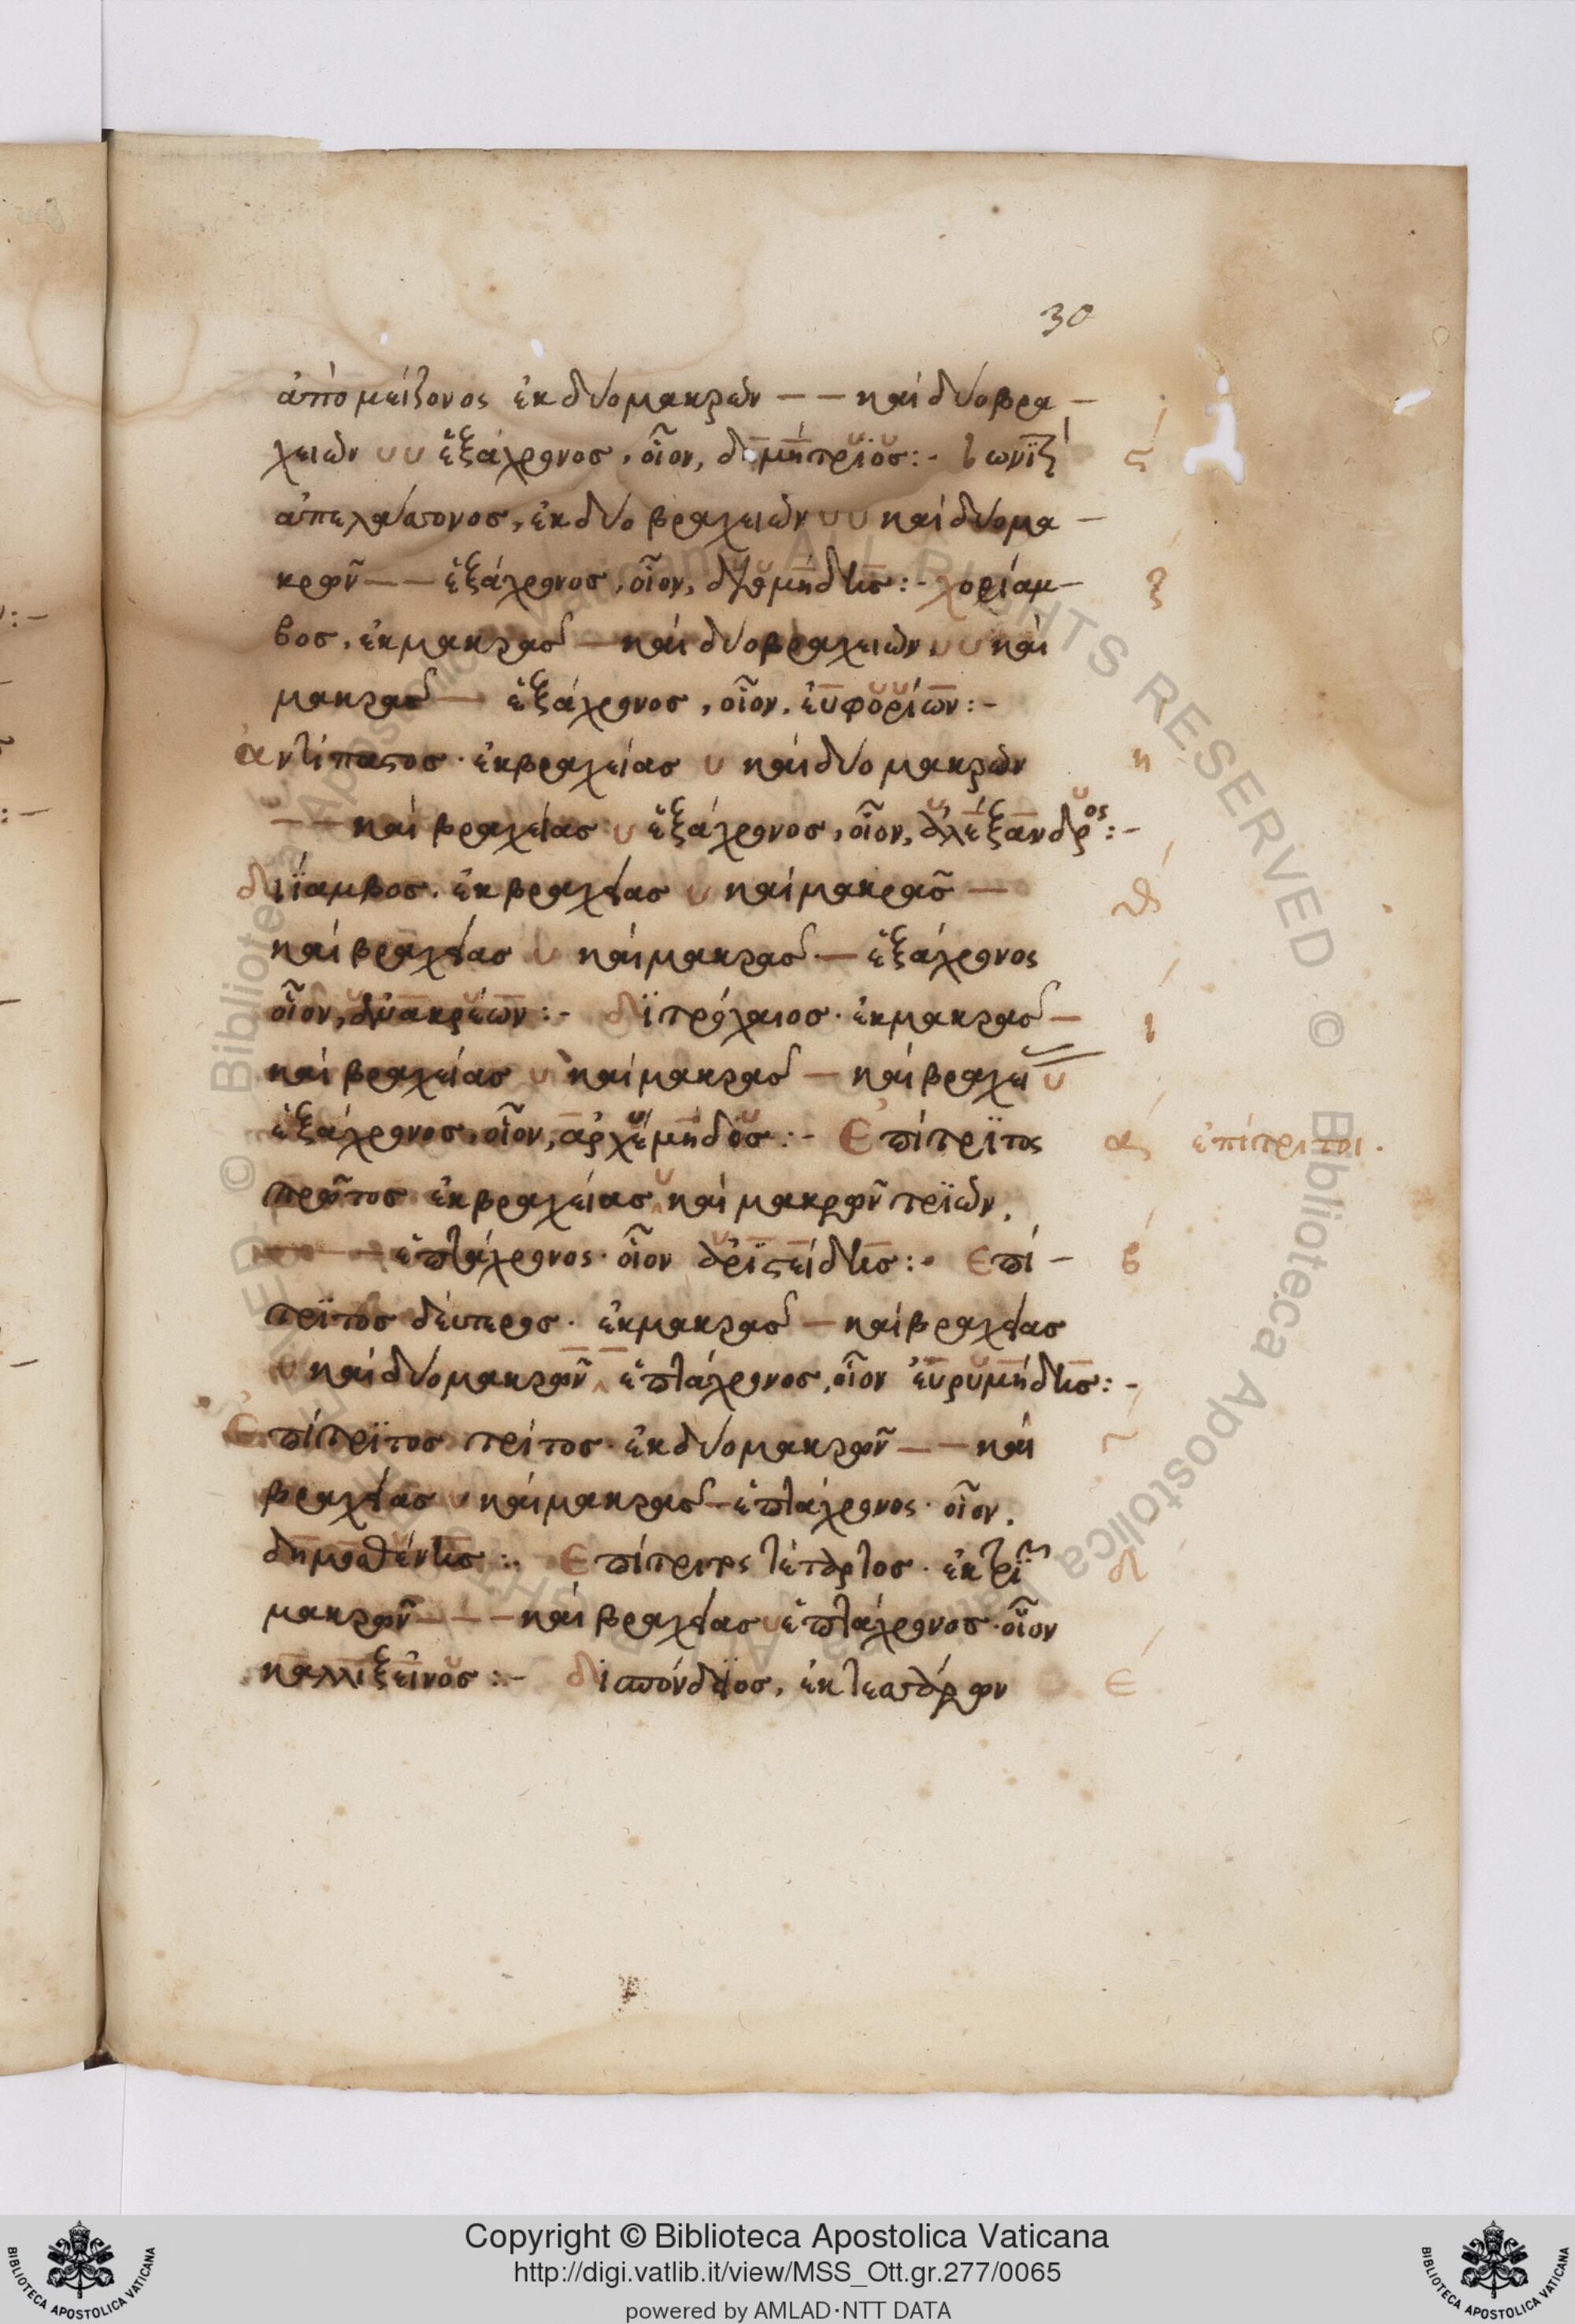 30
ἀπὸ μείζονος ἐκ δύο μακρῶν – – καὶ δύο βρα –
χειῶν υ υ ἑξάχρονος, οἷον, δημήτρϊος :- ϛ
ἀπ' ἐλάττονος, ἐκ δύο βραχειῶν υ υ καὶ δύο μα –
κρῶν – – ἑξάχρονος, οἷον, :- χορίαμ – ζ
βος, ἐκ μακρᾶς – καὶ δύο βραχειῶν υ υ καὶ
μακρᾶς – ἑξάχρονος, οἷον, εὐφορίων :-
ἀντίπαστος · ἐκ βραχείας υ καὶ δύο μακρῶν η
– – καὶ βραχείας υ ἑξάχρονος, οἷον, ἀλέξανδρος :-
διΐαμβος. ἐκ βραχείας υ καὶ μακρᾶς – θ
καὶ βραχείας υ καὶ μακρᾶς – ἑξάχρονος
οἷον, ἀνακρέων :- διτρόχαιος · ἐκ μακρᾶς – ι
καὶ βραχείας υ καὶ μακρᾶς – καὶ βραχει υ
ἑξάχρονος, οἷον, ἀρχέμηδος :- Ἐπίτρϊτος α ἐπίτριτοι.
πρῶτος ἐκ βραχείας υ καὶ μακρῶν τρϊῶν,
– – – ἑπτάχρονος · οἷον ἀρϊστείδης :- Ἐπί – β
τρϊτος δεύτερος · ἐκ μακρᾶς – καὶ βραχείας
υ καὶ δύο μακρῶν – – ἑπτάχρονος, οἷον εὐρυμήδης :-
Ἐπίτρϊτος τρίτος · ἐκ δύο μακρῶν – – καὶ γ
βραχείας υ καὶ μακρᾶς – ἑπτάχρονος · οἷον,
δημοσθένης :- Ἐπίτριτος τέταρτος · ἐκ τρϊῶν δ
μακρῶν – – – καὶ βραχείας υ ἑπτάχρονος · οἷον
καλλιξεῖνος :- δισπόνδειος, ἐκ τεσσάρων ε
Copyright © Biblioteca Apostolica Vaticana
http://digi.vatlib.it/view/MSS_Ott.gr.277/0065
powered by AMLAD·NTT DATA
BIBLIOTECA APOSTOLICA VATICANA
BIBLIOTECA APOSTOLICA VATICANA